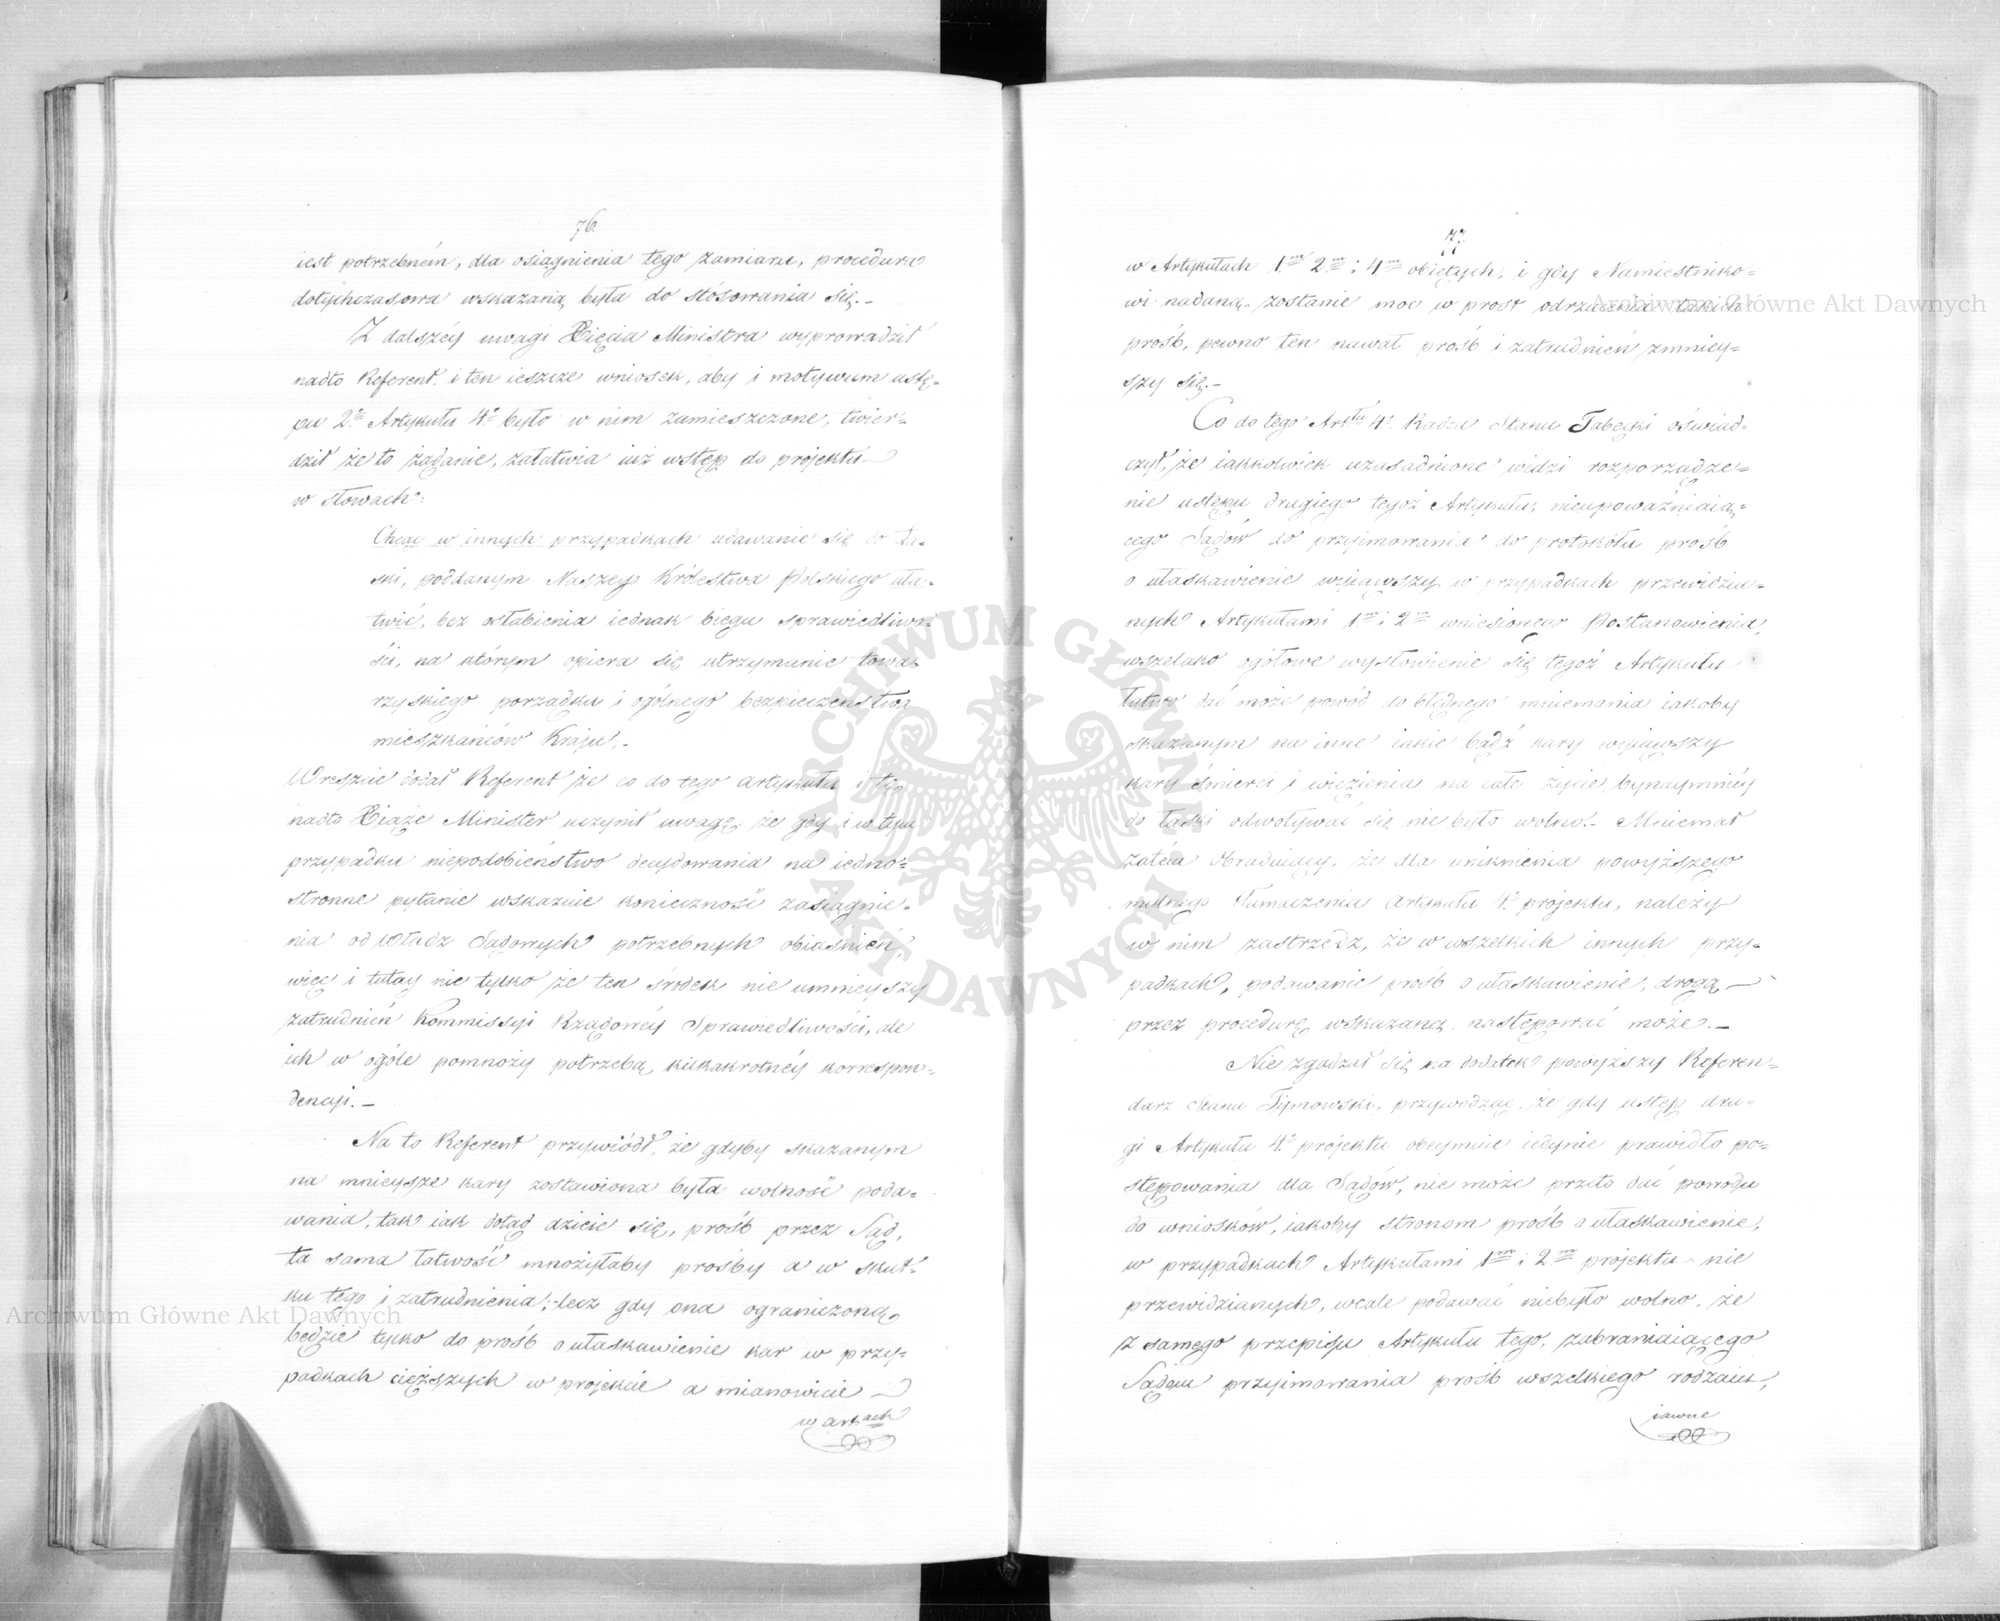 76.
iest potrzebnem, dla osiągnienia tego zamiaru, procedura
dotychczasowa wskazaną była do stósowania się.-
Z dalszéy uwagi Xięcia Ministra wyprowadził
nadto Referent, i ten ieszcze wniosek, aby i motywum ustę-
pu 2º Artykułu 4º było w nim zamieszczone, twier-
dził że to żądanie, załatwia iuż wstęp do projektu
w słowach:
Chcąc w innych przypadkach udawanie się do Ła-
ski, poddanym Naszego Królestwa Polskiego uła-
twić, bez osłabienia iednak biegu sprawiedliwo-
ści, na którym opiera się utrzymanie towa-
rzyskiego porządku i ogólnego bezpieczeństwa
mieszkańców Kraju.
Wreszcie dodał Referent że co do tego artykułu i tę
nadto Xiąże Minister uczynił uwagę, że gdy i w tym
przypadku niepodobieństwo decydowania na iedno-
stronne pytanie wskazuie konieczność zasiągnie-
nia od Władz Sądowych potrzebnych obiaśnień,
więc i tutay nie tylko że ten środek nie umnieyszy
zatrudnień Kommissyi Rządowéy Sprawiedliwości, ale
ich w ogóle pomnoży potrzebą kilkakrotnéy korrespon-
dencyi.-
Na to Referent przywiódł, że gdyby skazanym
na mnieysze kary zostawiona była wolność poda-
wania, tak iak dotąd dzieie się, prośb przez Sąd,
ta sama łatwość mnożyłaby prośby a w skut-
ku tego i zatrudnienia; lecz gdy ona ograniczoną
będzie tylko do prośb o ułaskawienie kar w przy-
padkach cięższych w projekcie a mianowicie
w artach
77
w Artykułach 1m 2m i 4m obiętych, i gdy Namiestniko-
wi nadaną zostanie moc w prost odrzucenia takich
prośb, pewno ten nawał prośb i zatrudnień zmniey-
szy się.-
Co do tego Artłu 4º Radca Stanu Tabęcki oświad-
czył, że iakkolwiek uzasadnione widzi rozporządze-
nie ustępu drugiego tegoż Artykułu, nieupoważniaią-
cego Sądów do przyimowania do protokółu prośb
o ułaskawienie wyiąwszy w przypadkach przewidzia-
nych Artykułami 1m i 2m wniesionego Postanowienia,
wszelako ogółowe wysłowienie się tegoż Artykułu
łatwo dać może powód do błędnego mniemania iakoby
skazanym na inne iakie bądź kary wyiąwszy
kary śmierci i więzienia na całe życie, bynaymniéy
do łaski odwoływać się nie było wolno.- Mniemał
zatém Obraduiący, że dla uniknienia powyższego
mylnego tłumaczenia Artykułu 4º projektu, należy
w nim zastrzedz, że w wszelkich innych przy-
padkach, podawanie prośb o ułaskawienie, drogą
przez procedurę wskazaną następować może.-
Nie zgadzał się na dodatek powyższy Referen-
darz Stanu Tymowski, przywodząc, że gdy ustęp dru-
gi Artykułu 4º projektu obeymuie iedynie prawidło po-
stępowania dla Sądów, nie może przeto dać powodu
do wniosków, iakoby stronom prośb o ułaskawienie,
w przypadkach Artykułami 1m i 2m projektu nie
przewidzianych, wcale podawać niebyło wolno, że
z samego przepisu Artykułu tego, zabraniaiącego
Sądom przyimowania prośb wszelkiego rodzaiu,
iawne
Archiwum Główne Akt Dawnych
Archiwum Główne Akt Dawnych
ARCHIWUM GŁÓWNE AKT DAWNYCH